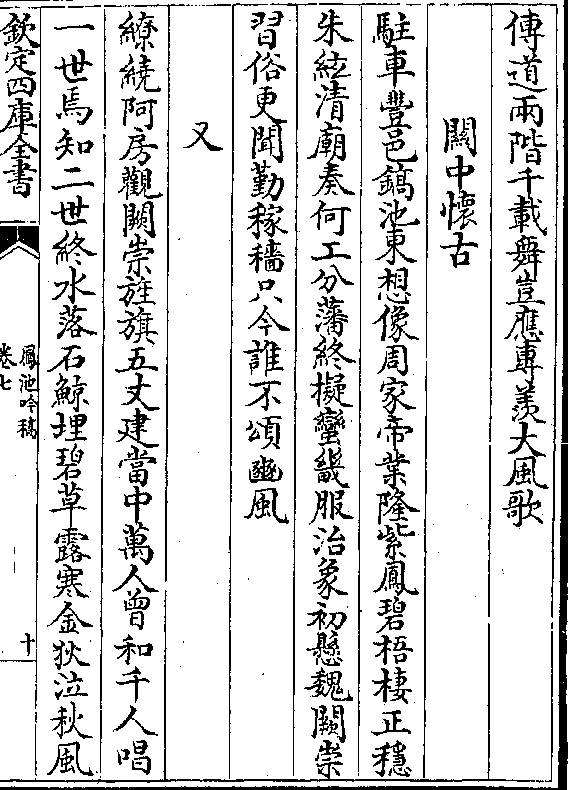 傳道兩階干載舞豈應專羨大風歌
關中懷古
駐車豐邑鎬池東想像周家帝業隆紫鳳碧梧棲正穩
朱絃清廟奏何工分藩終擬蠻畿服治象初懸魏闕崇
習俗更聞勤稼穡只今誰不頌豳風
又
繚繞阿房觀闕崇旌旗五丈建當中萬人曾和千人唱
一世焉知二世終水落石鯨埋碧草露寒金狄泣秋風
欽定四庫全書
鳳池吟稿
卷七
十